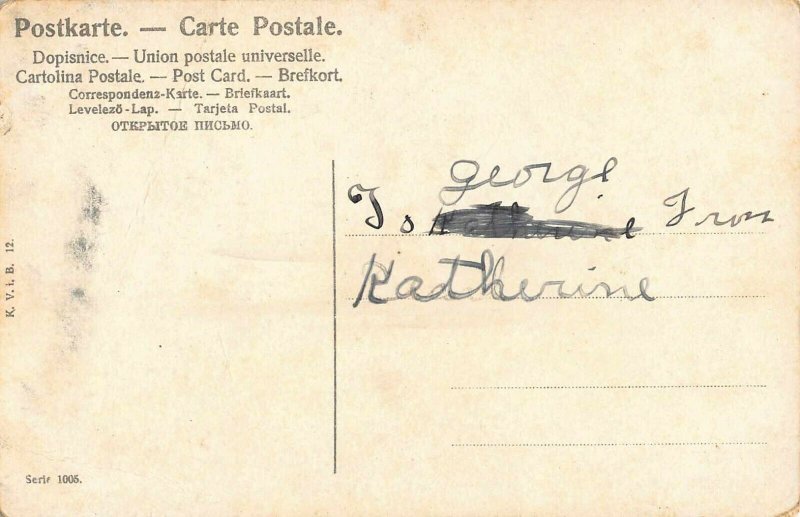 Postkarte. — Carte Postale.
Dopisnice. — Union postale universelle.
Cartolina Postale. — Post Card. — Brefkort.
Correspondenz-Karte. — Briefkaart.
Levelező-Lap. — Tarjeta Postal.
ОТКРЫТОЕ ПИСЬМО.
George
To Katherine From
Katherine
K. V. i. B. 12.
Serie 1005.